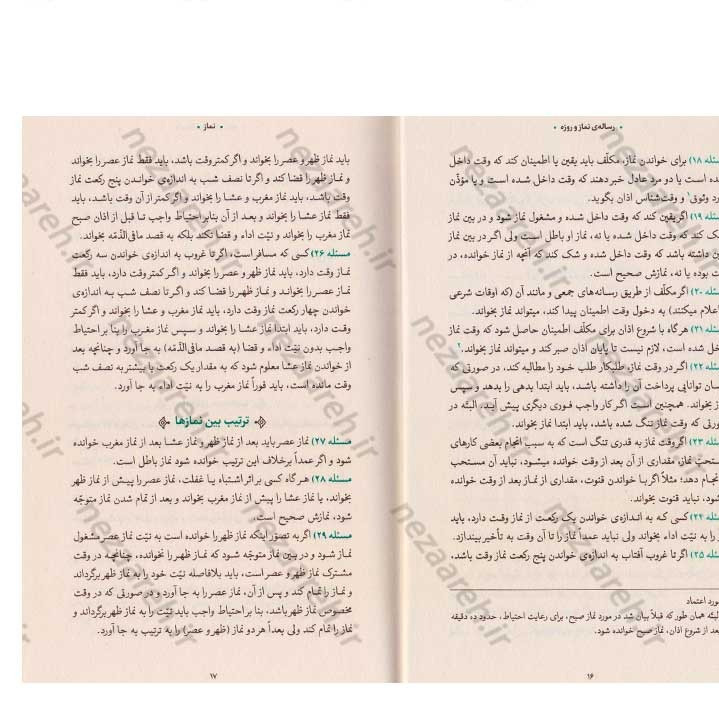 • رساله‌ی نماز و روزه •
مسئله ۱۸) برای خواندن نماز، مکلّف باید یقین یا اطمینان کند که وقت داخل
شده است یا دو مرد عادل خبر دهند که وقت داخل شده است و یا مؤذّن
مورد وثوق۱ و وقت‌شناس اذان بگوید.
مسئله ۱۹) اگر یقین کند که وقت داخل شده و مشغول نماز شود و در بین نماز
شک کند که وقت داخل شده یا نه، نماز او باطل است ولی اگر در بین نماز
یقین داشته باشد که وقت داخل شده و شک کند که آنچه از نماز خوانده، در
وقت بوده یا نه، نمازش صحیح است.
مسئله ۲۰) اگر مکلّف از طریق رسانه‌های جمعی و مانند آن (که اوقات شرعی
را اعلام میکنند) به دخول وقت اطمینان پیدا کند، میتواند نماز بخواند.
مسئله ۲۱) هرگاه با شروع اذان برای مکلّف اطمینان حاصل شود که وقت نماز
داخل شده است، لازم نیست تا پایان اذان صبر کند و میتواند نماز بخواند.۲
مسئله ۲۲) اگر در وقت نماز، طلبکار طلب خود را مطالبه کند، در صورتی که
انسان توانایی پرداخت آن را داشته باشد، باید ابتدا بدهی را بدهد و سپس
نماز بخواند. همچنین است اگر کار واجب فوری دیگری پیش آید، البتّه در
صورتی که وقت نماز تنگ شده باشد، باید ابتدا نماز بخواند.
مسئله ۲۳) اگر وقت نماز به قدری تنگ است که به سبب انجام بعضی کارهای
مستحبّ نماز، مقداری از آن بعد از وقت خوانده میشود، نباید آن مستحب
را انجام دهد؛ مثلاً اگر با خواندن قنوت، مقداری از نماز بعد از وقت خوانده
شود، نباید قنوت بخواند.
مسئله ۲۴) کسی که به اندازه‌ی خواندن یک رکعت از نماز وقت دارد، باید
نماز را به نیّت اداء بخواند ولی نباید عمداً نماز را تا آن وقت به تأخیر بیندازد.
مسئله ۲۵) اگر تا غروب آفتاب به اندازه‌ی خواندن پنج رکعت نماز وقت باشد،
مورد اعتماد
البتّه همان طور که قبلاً بیان شد در مورد نماز صبح، برای رعایت احتیاط، حدود ده دقیقه
بعد از شروع اذان، نماز صبح خوانده شود.
۱۶
• نماز •
باید نماز ظهر و عصر را بخواند و اگر کمتر وقت باشد، باید فقط نماز عصر را بخواند
و نماز ظهر را قضا کند و اگر تا نصف شب به اندازه‌ی خواندن پنج رکعت نماز
وقت باشد، باید نماز مغرب و عشا را بخواند و اگر کمتر از آن وقت باشد، باید
فقط نماز عشا را بخواند و بعد از آن بنابر احتیاط واجب تا قبل از اذان صبح
نماز مغرب را بخواند و نیّت اداء و قضا نکند بلکه به قصد مافی‌الذّمّه بخواند.
مسئله ۲۶) کسی که مسافر است، اگر تا غروب به اندازه‌ی خواندن سه رکعت
نماز وقت دارد، باید نماز ظهر و عصر را بخواند و اگر کمتر وقت دارد، باید فقط
نماز عصر را بخواند و نماز ظهر را قضا کند و اگر تا نصف شب به اندازه‌ی
خواندن چهار رکعت نماز وقت دارد، باید نماز مغرب و عشا را بخواند و اگر کمتر
وقت دارد، باید ابتدا نماز عشا را بخواند و سپس نماز مغرب را بنا بر احتیاط
واجب بدون نیّت اداء و قضا (به قصد مافی‌الذّمّه) به جا آورد و چنانچه بعد
از خواندن نماز عشا معلوم شود که به مقدار یک رکعت یا بیشتر به نصف شب
وقت مانده است، باید فوراً نماز مغرب را به نیّت اداء به جا آورد.
ترتیب بین نمازها
مسئله ۲۷) نماز عصر باید بعد از نماز ظهر و نماز عشا بعد از نماز مغرب خوانده
شود و اگر عمداً برخلاف این ترتیب خوانده شود نماز باطل است.
مسئله ۲۸) هرگاه کسی بر اثر اشتباه یا غفلت، نماز عصر را پیش از نماز ظهر
بخواند، یا نماز عشا را پیش از نماز مغرب بخواند و بعد از تمام شدن نماز متوجّه
شود، نمازش صحیح است.
مسئله ۲۹) اگر به تصوّر اینکه نماز ظهر را خوانده است به نیّت نماز عصر مشغول
نماز شود و در بین نماز متوجّه شود که نماز ظهر را نخوانده، چنانچه در وقت
مشترک نماز ظهر و عصر است، باید بلافاصله نیّت خود را به نماز ظهر برگرداند
و نماز را تمام کند و پس از آن، نماز عصر را به جا آورد و در صورتی که در وقت
مخصوص نماز ظهر باشد، بنا بر احتیاط واجب باید نیّت را به نماز ظهر برگرداند و
نماز را تمام کند ولی بعداً هر دو نماز (ظهر و عصر) را به ترتیب به جا آورد.
۱۷
nezaareh.ir